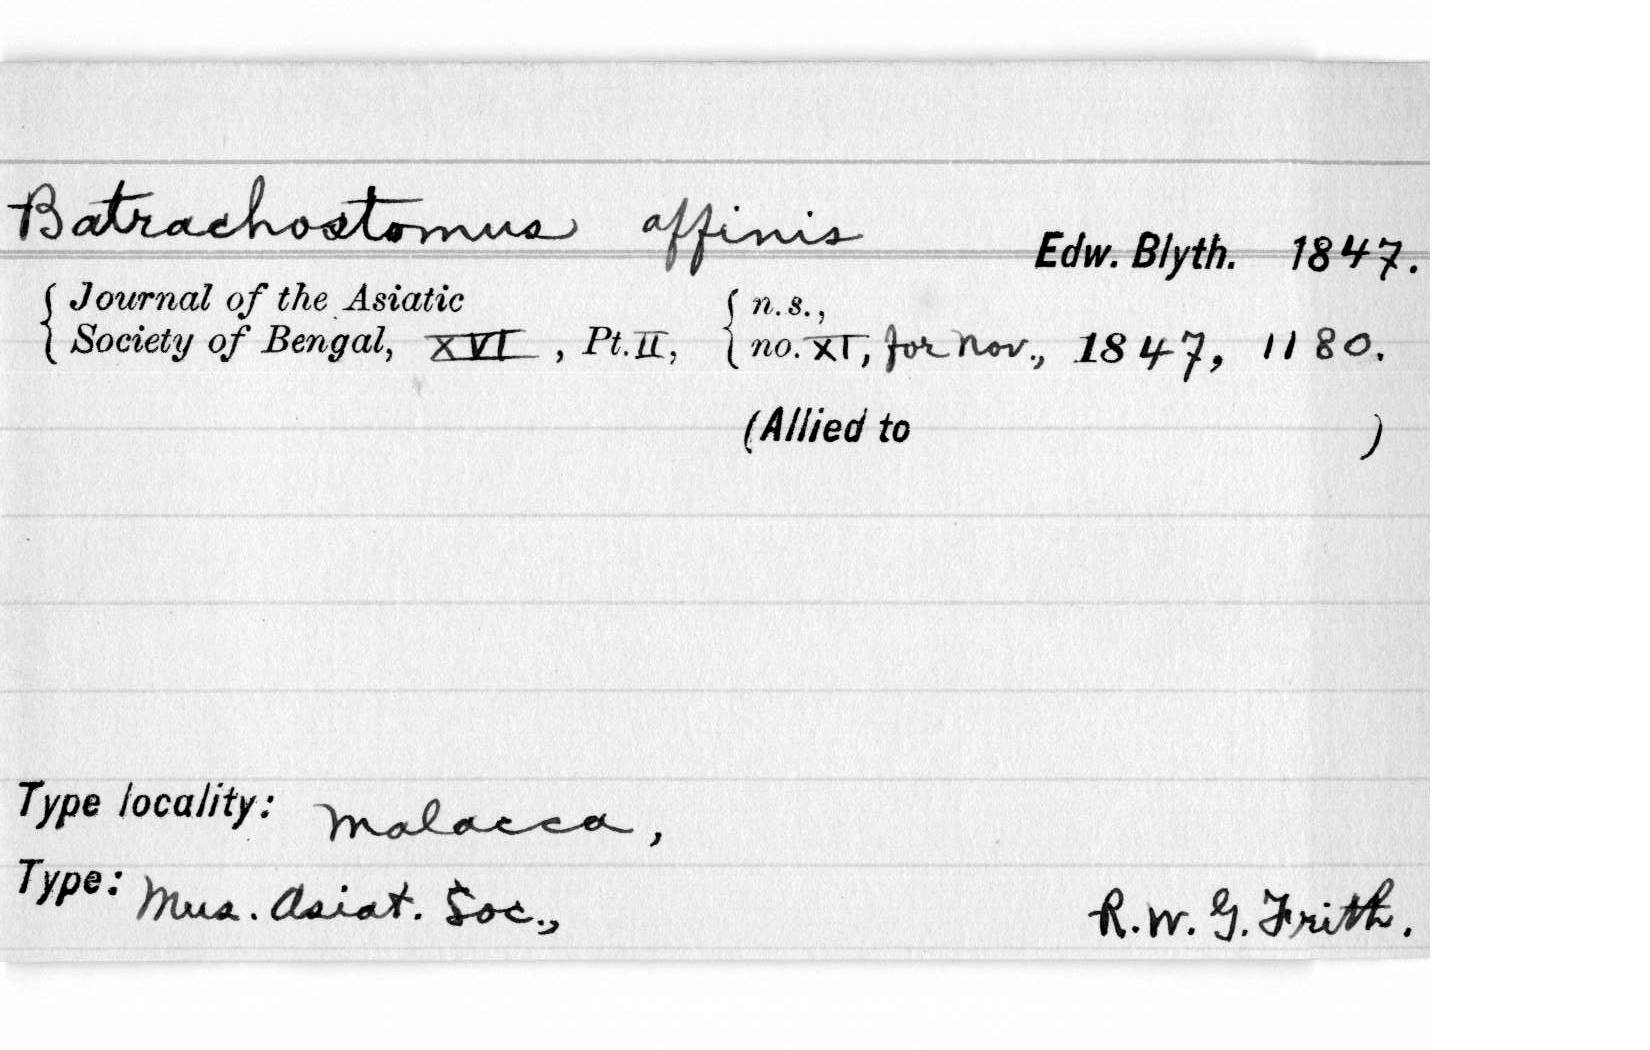 Batrachostomus affinis
Edw. Blyth. 1847.
Journal of the Asiatic
Society of Bengal, XVI, Pt. II,
n.s.,
no. XI, for Nov., 1847, 1180.
(Allied to )
Type locality: Malacca,
Type: Mus. Asiat. Soc., R. W. G. Frith.